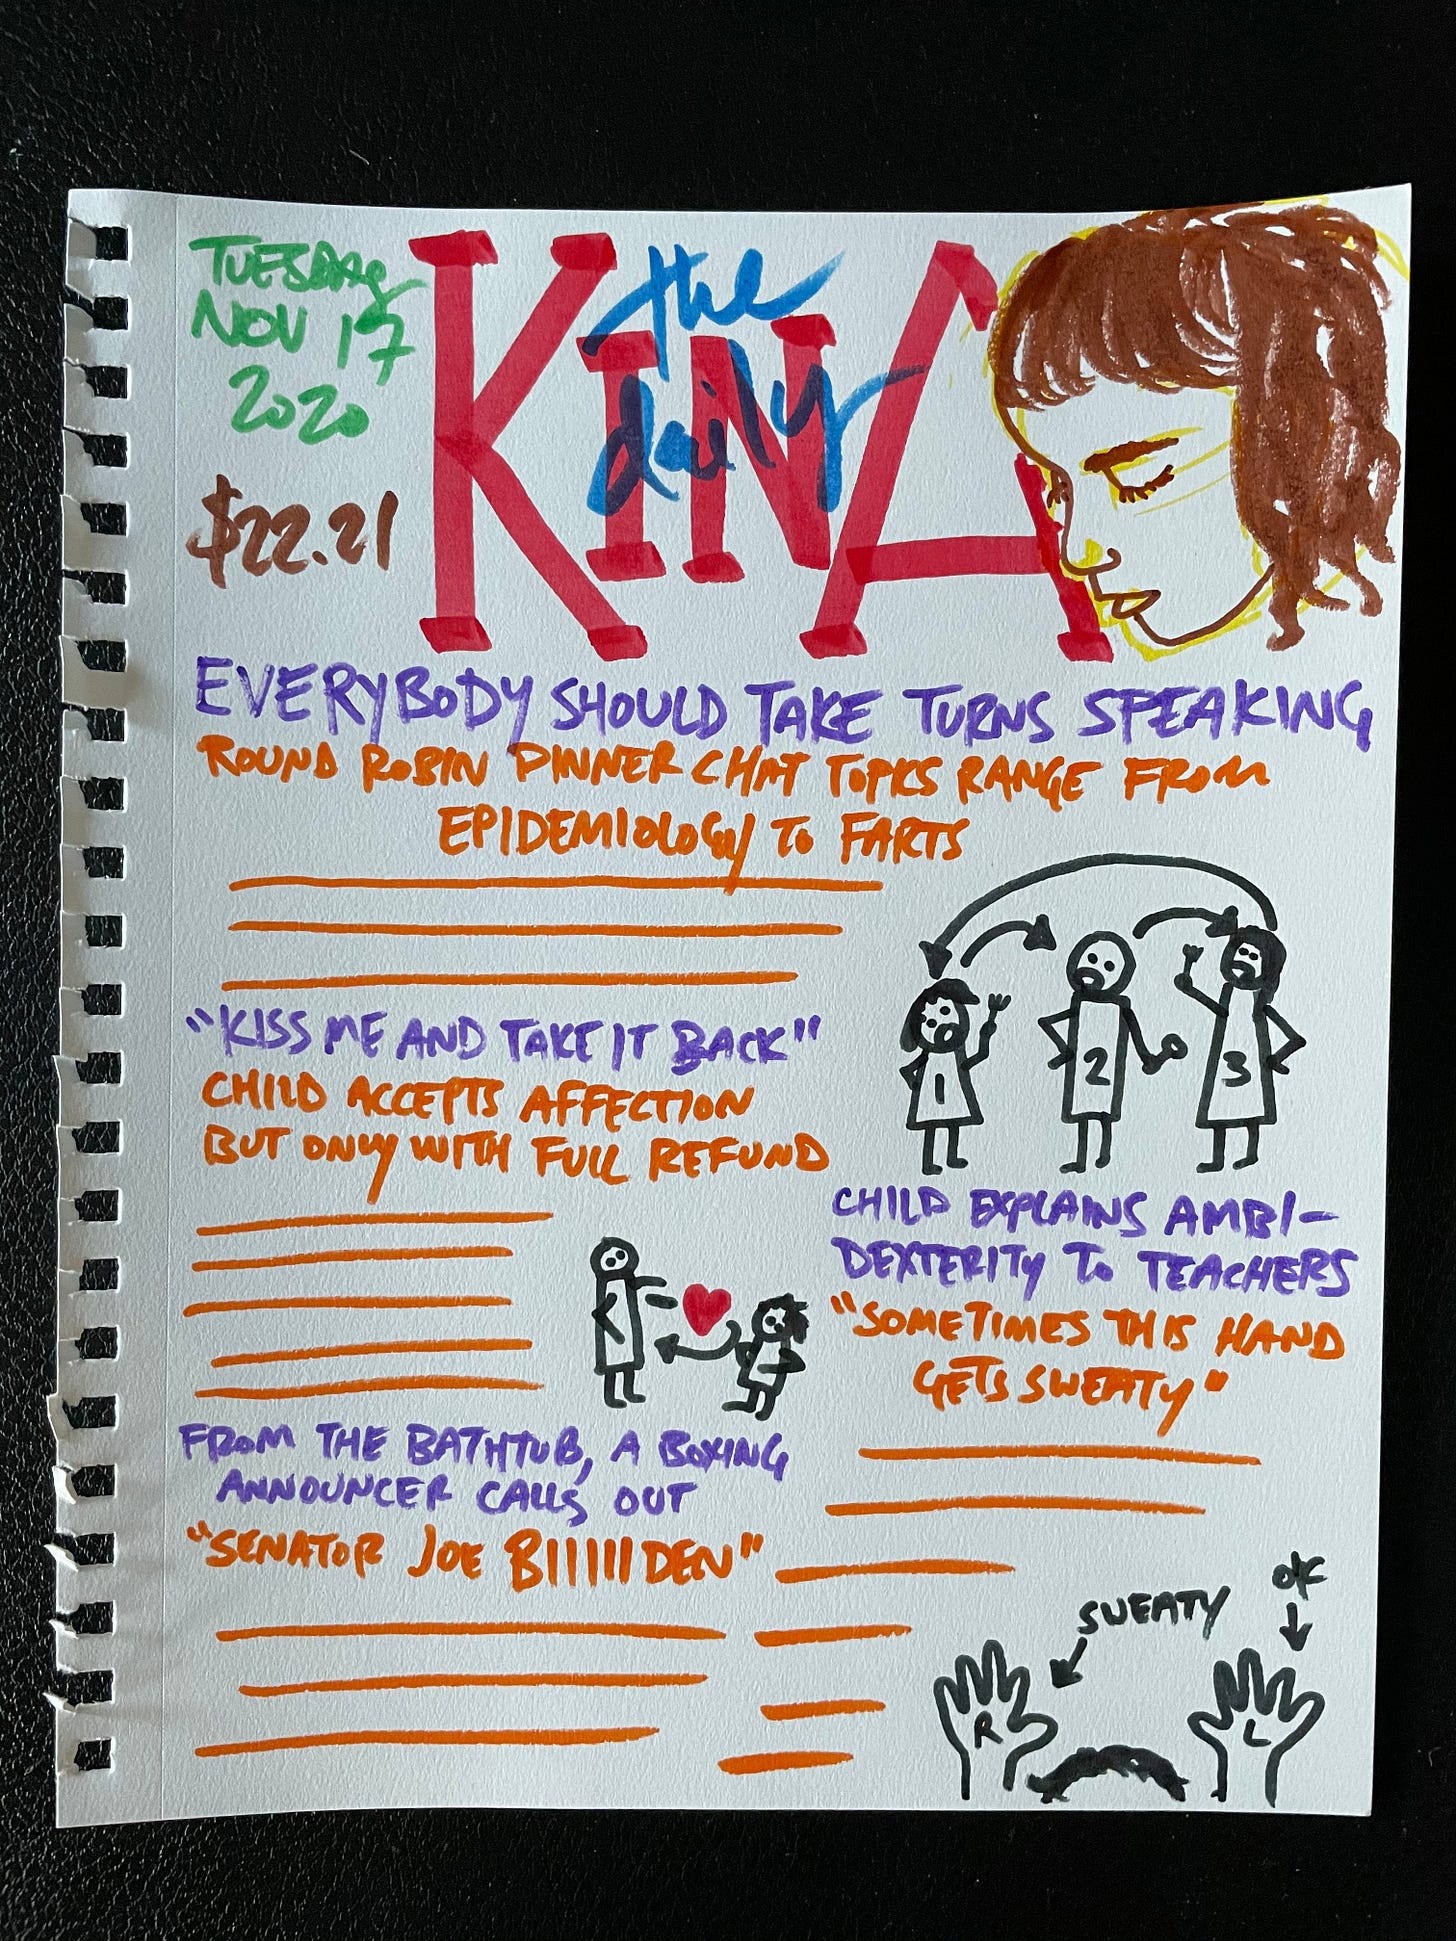 TUESDAY
NOV 17
2020
$22.21
the
daily
KINA
EVERYBODY SHOULD TAKE TURNS SPEAKING
ROUND ROBIN DINNER CHAT TOPICS RANGE FROM
EPIDEMIOLOGY TO FARTS
1
2
3
"KISS ME AND TAKE IT BACK"
CHILD ACCEPTS AFFECTION
BUT ONLY WITH FULL REFUND
CHILD EXPLAINS AMBI-
DEXTERITY TO TEACHERS
"SOMETIMES THIS HAND
GETS SWEATY"
FROM THE BATHTUB, A BOXING
ANNOUNCER CALLS OUT
"SENATOR JOE BIIIIIIDEN"
SWEATY
OK
R
L